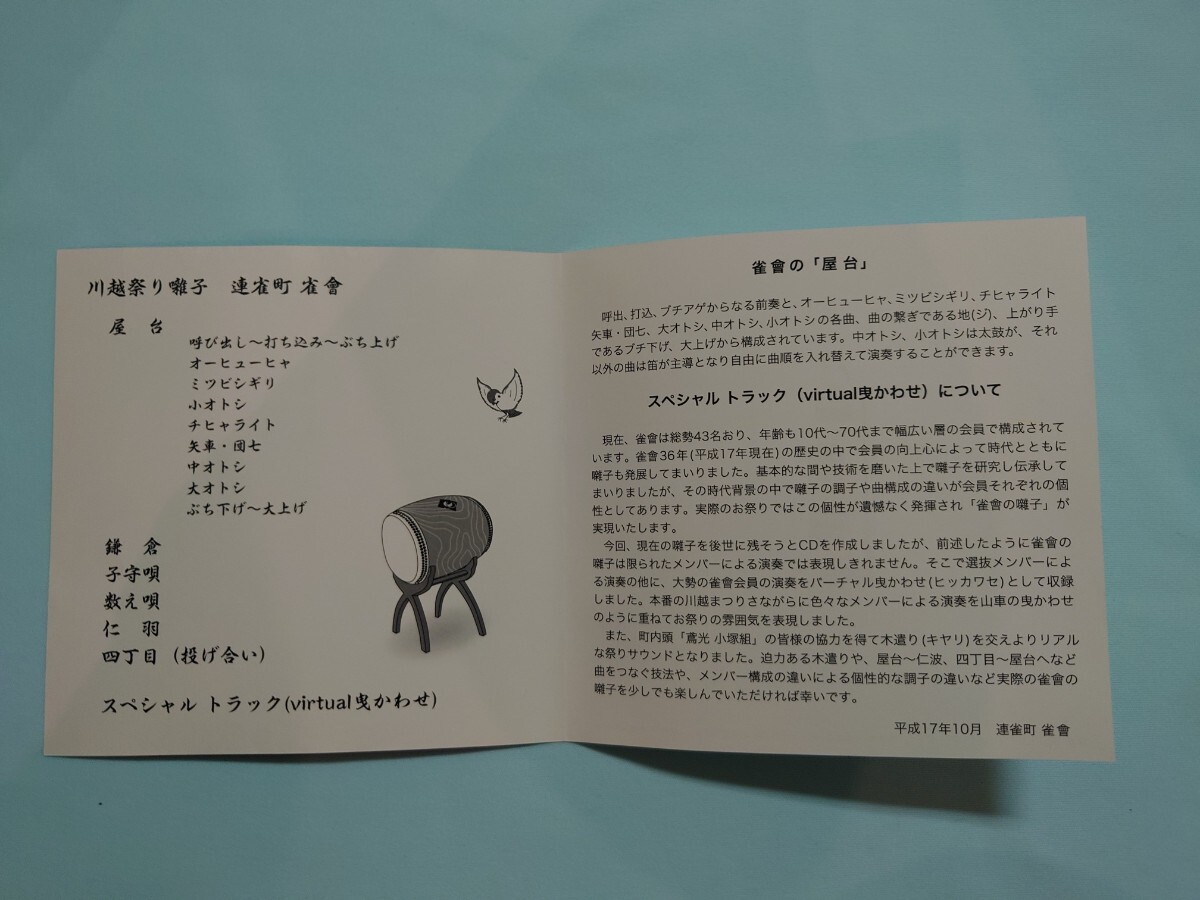 川越祭り囃子　連雀町 雀會
屋　台
呼び出し〜打ち込み〜ぶち上げ
オーヒューヒャ
ミツビシギリ
小オトシ
チヒャライト
矢車・団七
中オトシ
大オトシ
ぶち下げ〜大上げ
鎌　倉
子守唄
数え唄
仁　羽
四丁目（投げ合い）
スペシャル トラック(virtual曳かわせ)
雀會の「屋台」
呼出、打込、ブチアゲからなる前奏と、オーヒューヒャ、ミツビシギリ、チヒャライト
矢車・団七、大オトシ、中オトシ、小オトシの各曲、曲の繋ぎである地(ジ)、上がり手
であるブチ下げ、大上げから構成されています。中オトシ、小オトシは太鼓が、それ
以外の曲は笛が主導となり自由に曲順を入れ替えて演奏することができます。
スペシャル トラック（virtual曳かわせ）について
現在、雀會は総勢43名おり、年齢も10代〜70代まで幅広い層の会員で構成されて
います。雀會36年(平成17年現在)の歴史の中で会員の向上心によって時代とともに
囃子も発展してまいりました。基本的な間や技術を磨いた上で囃子を研究し伝承して
まいりましたが、その時代背景の中で囃子の調子や曲構成の違いが会員それぞれの個
性としてあります。実際のお祭りではこの個性が遺憾なく発揮され「雀會の囃子」が
実現いたします。
今回、現在の囃子を後世に残そうとCDを作成しましたが、前述したように雀會の
囃子は限られたメンバーによる演奏では表現しきれません。そこで選抜メンバーによ
る演奏の他に、大勢の雀會会員の演奏をバーチャル曳かわせ(ヒッカワセ)として収録
しました。本番の川越まつりさながらに色々なメンバーによる演奏を山車の曳かわせ
のように重ねてお祭りの雰囲気を表現しました。
また、町内頭「鳶光 小塚組」の皆様の協力を得て木遣り(キヤリ)を交えよりリアル
な祭りサウンドとなりました。迫力ある木遣りや、屋台〜仁波、四丁目〜屋台へなど
曲をつなぐ技法や、メンバー構成の違いによる個性的な調子の違いなど実際の雀會の
囃子を少しでも楽しんでいただければ幸いです。
平成17年10月　連雀町 雀會